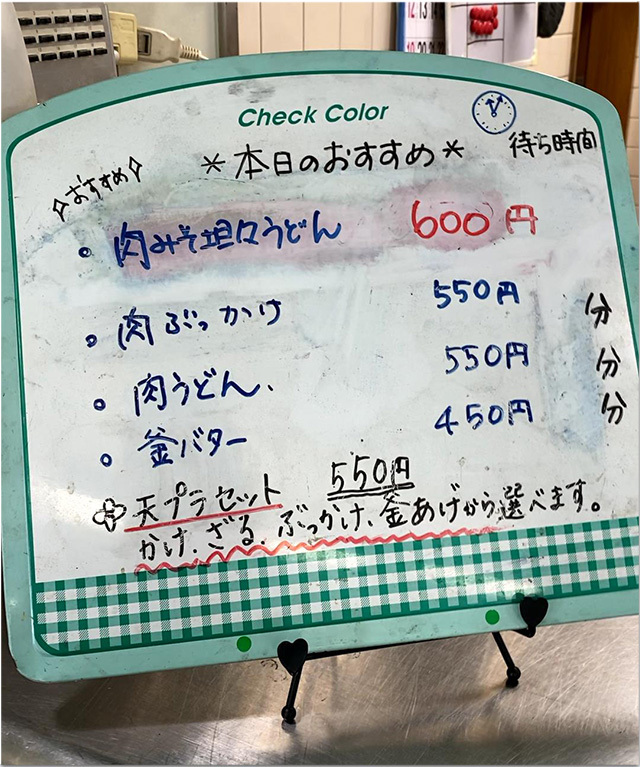 Check Color
*本日のおすすめ*
待ち時間
おすすめ
・肉みそ坦々うどん 600円
・肉ぶっかけ 550円 分
・肉うどん、 550円 分
・釜バター 450円 分
天プラセット 550円
かけ、ざる、ぶっかけ、釜あげから選べます。